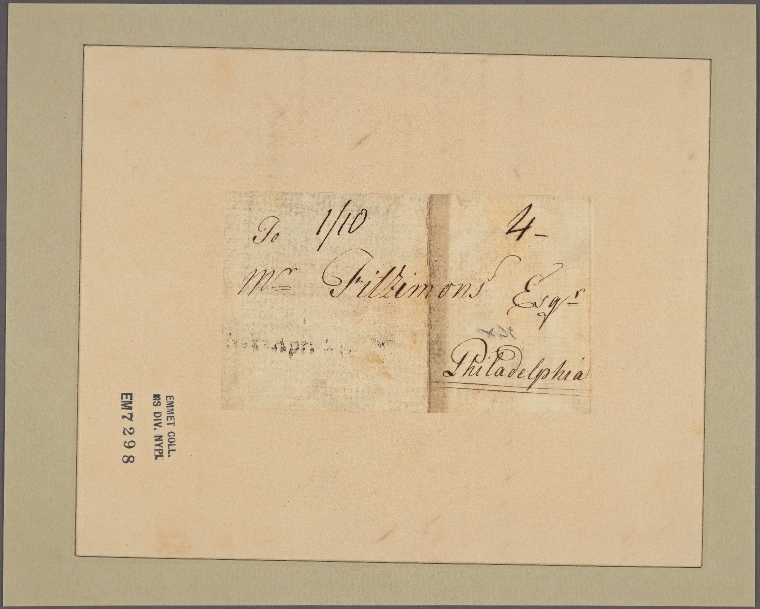 To 1/10 4-
Mr Fitzimons Esqr
Philadelphia
EMMET COLL.
MS DIV. NYPL
EM7298